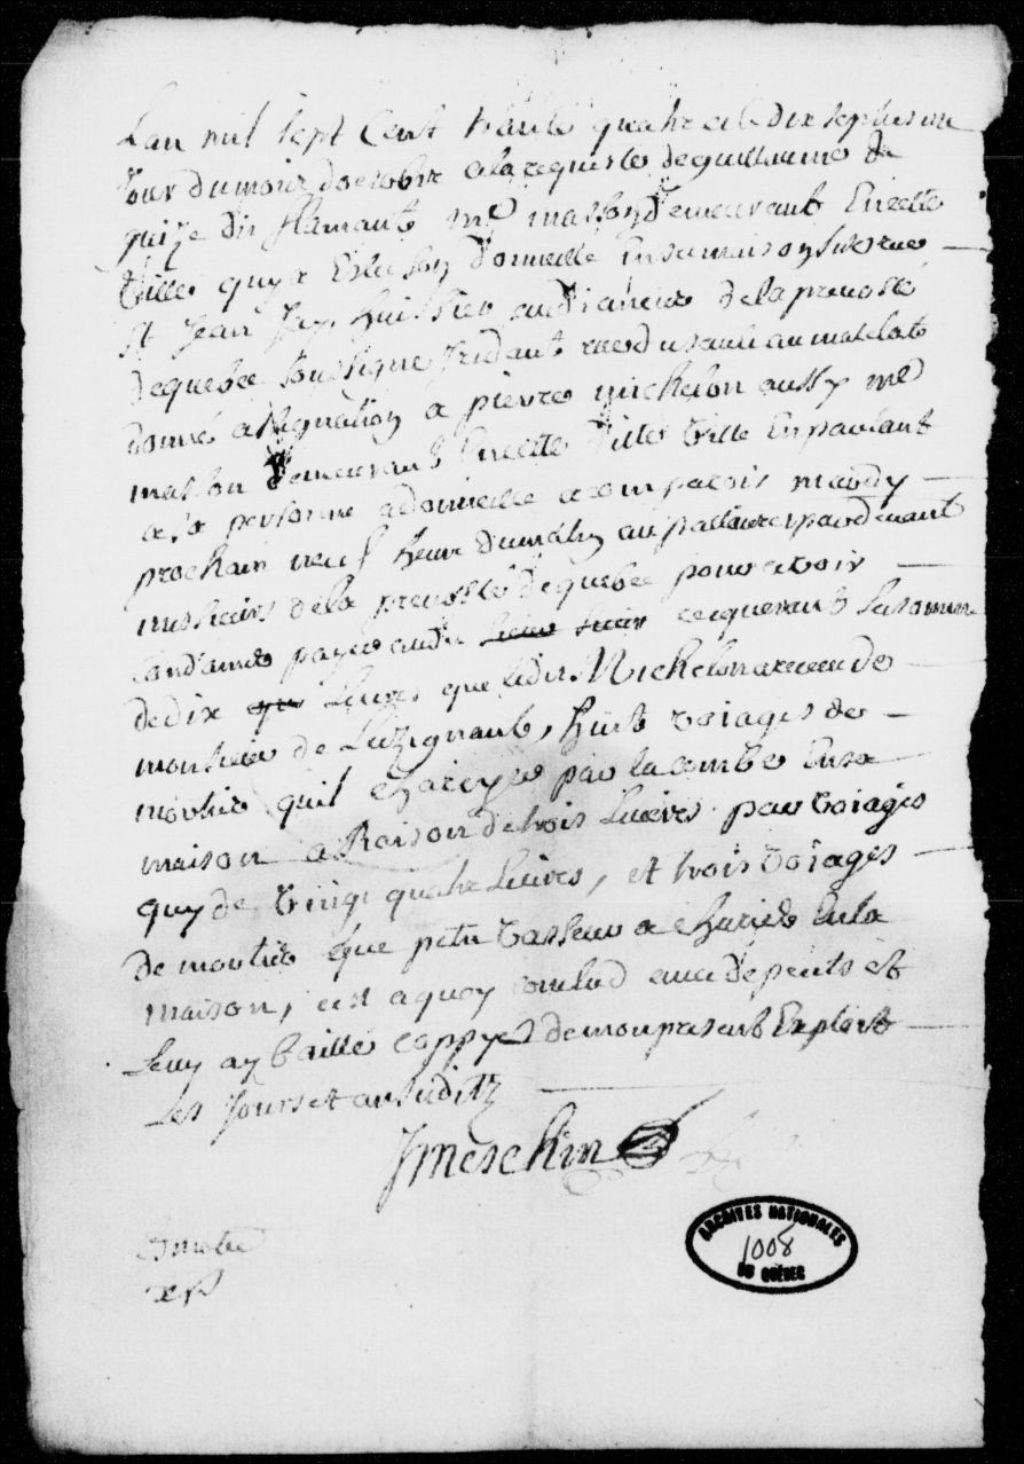 Lan mil sept Cent trante quatre et le dix septiesme
Jour du moiz doctobre a la requeste de guillaume de
guize dit flamant me masson demeurant En cette
Ville quy a Eslu son domicille En sa maison size rue
St Jean Jay huissier audiancier de la prevosté
de quebec soussigne residant rue du sault au matelot
donné assignation a pierre michelon aussy me
masson demeurant En cette ditte Ville En parlant
a sa personne a domicille a comparoir mardy
prochain neuf heure du matin au pallais par devant
messieurs de la prevosté de quebec pour se voir
Condamné payer audit sieur requerant la somme
de dix livres que ledit Michelon a receu de
monsieur de Luzignant, huit voiages de
mortier quil charoyé par la combe En sa
maison a Raison de trois Livres par voiages
quy de vingt quatre Livres, et trois voiages
de mortier que petit vasseur a charié En la
maison, cest a quoy conclud avec depents et
Luy ay baillé coppye de mon present Exploit
Les Jours et an susditz
Jmeschin
ARCHIVES NATIONALES
1008
DU QUÉBEC